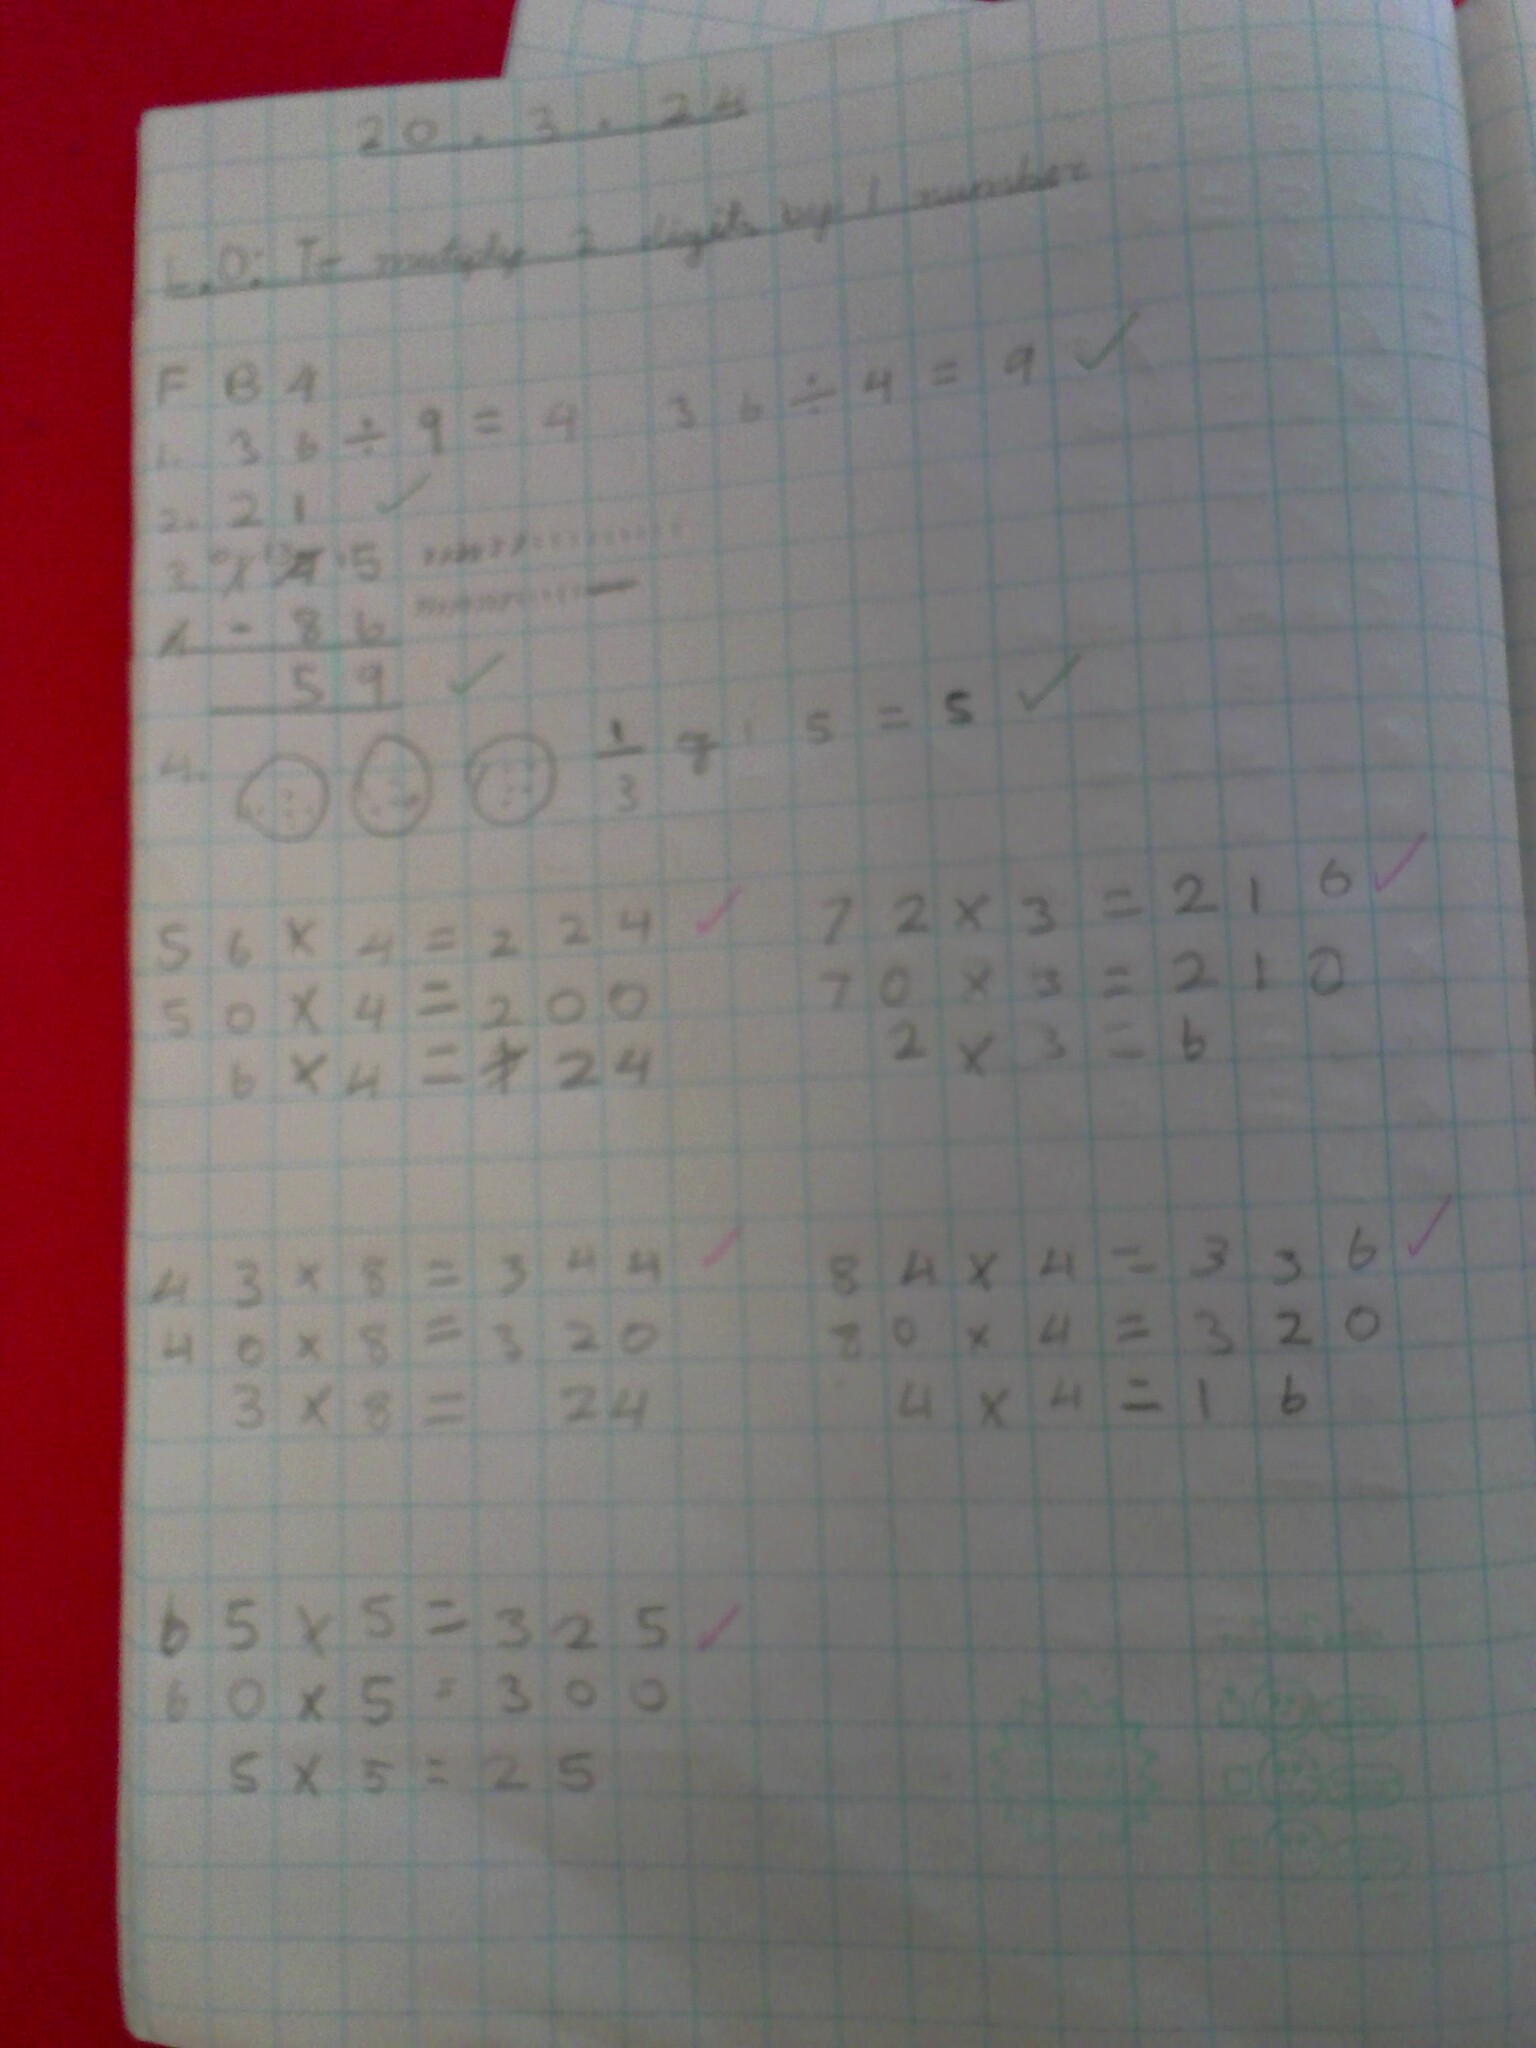 20.3.24
L.O: To mutiply 2 digits by 1 number
F B 4
1. 36 ÷ 9 = 4 36 ÷ 4 = 9 ✓
2. 21 ✓
3. 145
- 86
59 ✓
4. 1/3 of 15 = 5 ✓
56 × 4 = 224 ✓
50 × 4 = 200
6 × 4 = 24
72 × 3 = 216 ✓
70 × 3 = 210
2 × 3 = 6
43 × 8 = 344 ✓
40 × 8 = 320
3 × 8 = 24
84 × 4 = 336 ✓
80 × 4 = 320
4 × 4 = 16
65 × 5 = 325 ✓
60 × 5 = 300
5 × 5 = 25